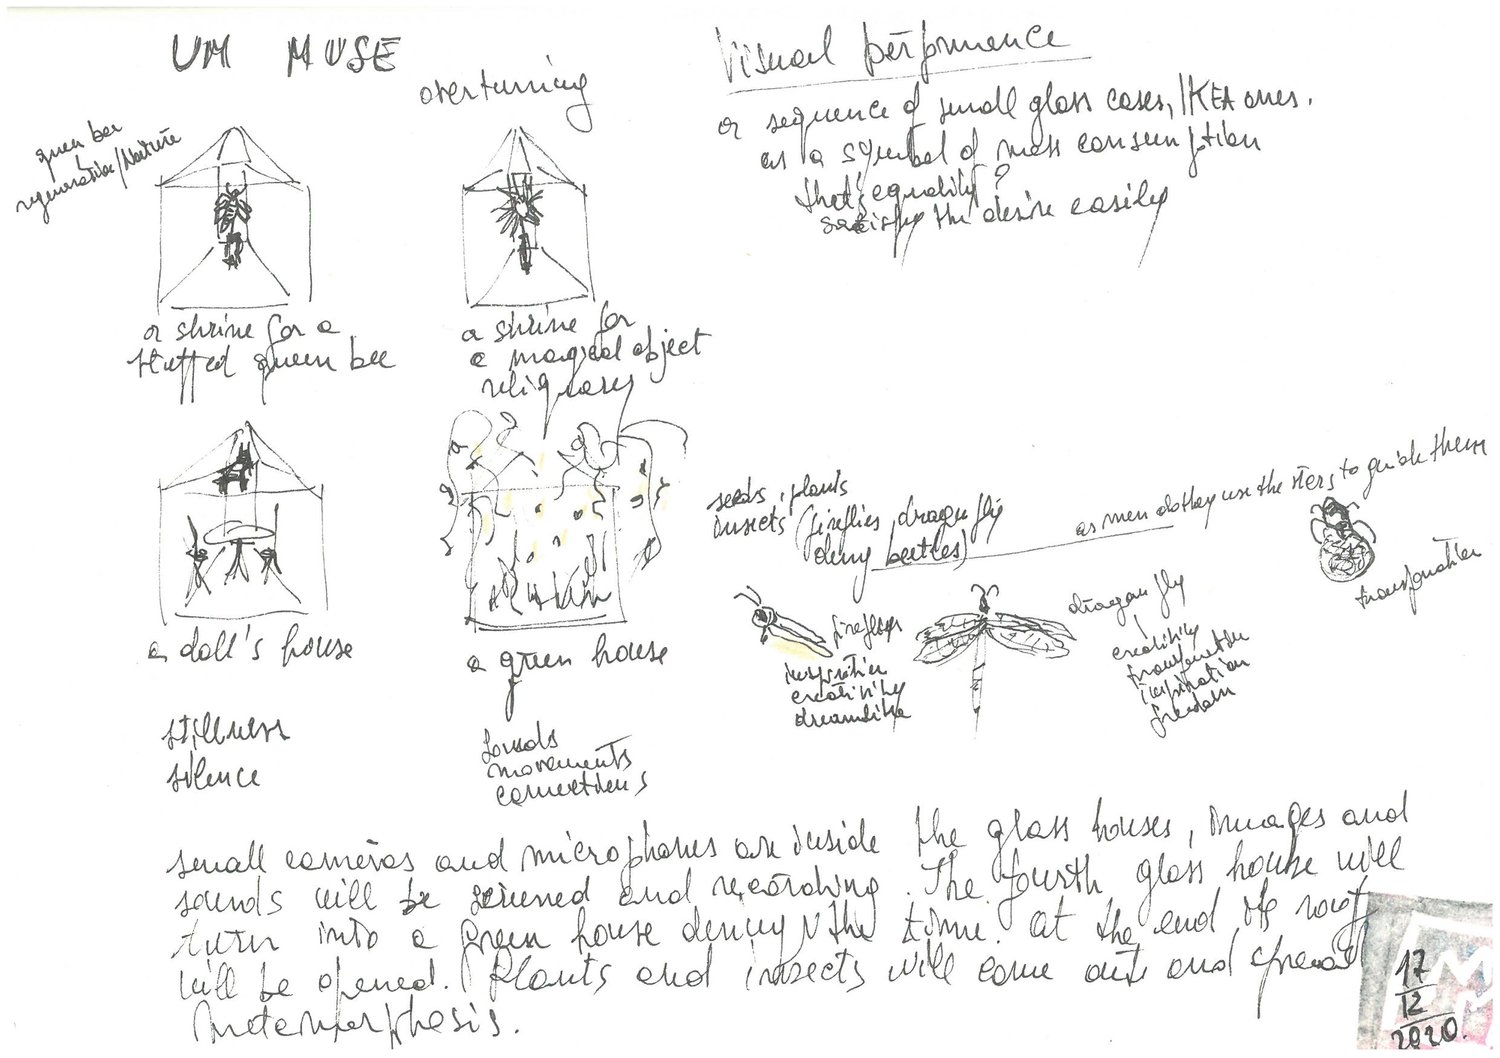 UM MUSE
overturning
queen bee
regeneration/Nature
a shrine for a
stuffed queen bee
a shrine for
a magical object
reliquary
a doll's house
a green house
stillness
silence
sounds
movements
connections
Visual performance
a sequence of small glass cases, IKEA ones.
as a symbol of mass consumption
that's equality?
satisfy the desire easily
seeds, plants
insects (fireflies, dragonfly
dung beetles)
as men do they use the stars to guide them
transformation
fireflys
inspiration
creativity
dreamtime
dragonfly
creativity
inspiration
freedom
small cameras and microphones are inside the glass houses, images and
sounds will be screened and recording. The fourth glass house will
turn into a green house during the time. at the end its roof
will be opened. Plants and insects will come out and spread
metamorphosis.
17
12
2020.